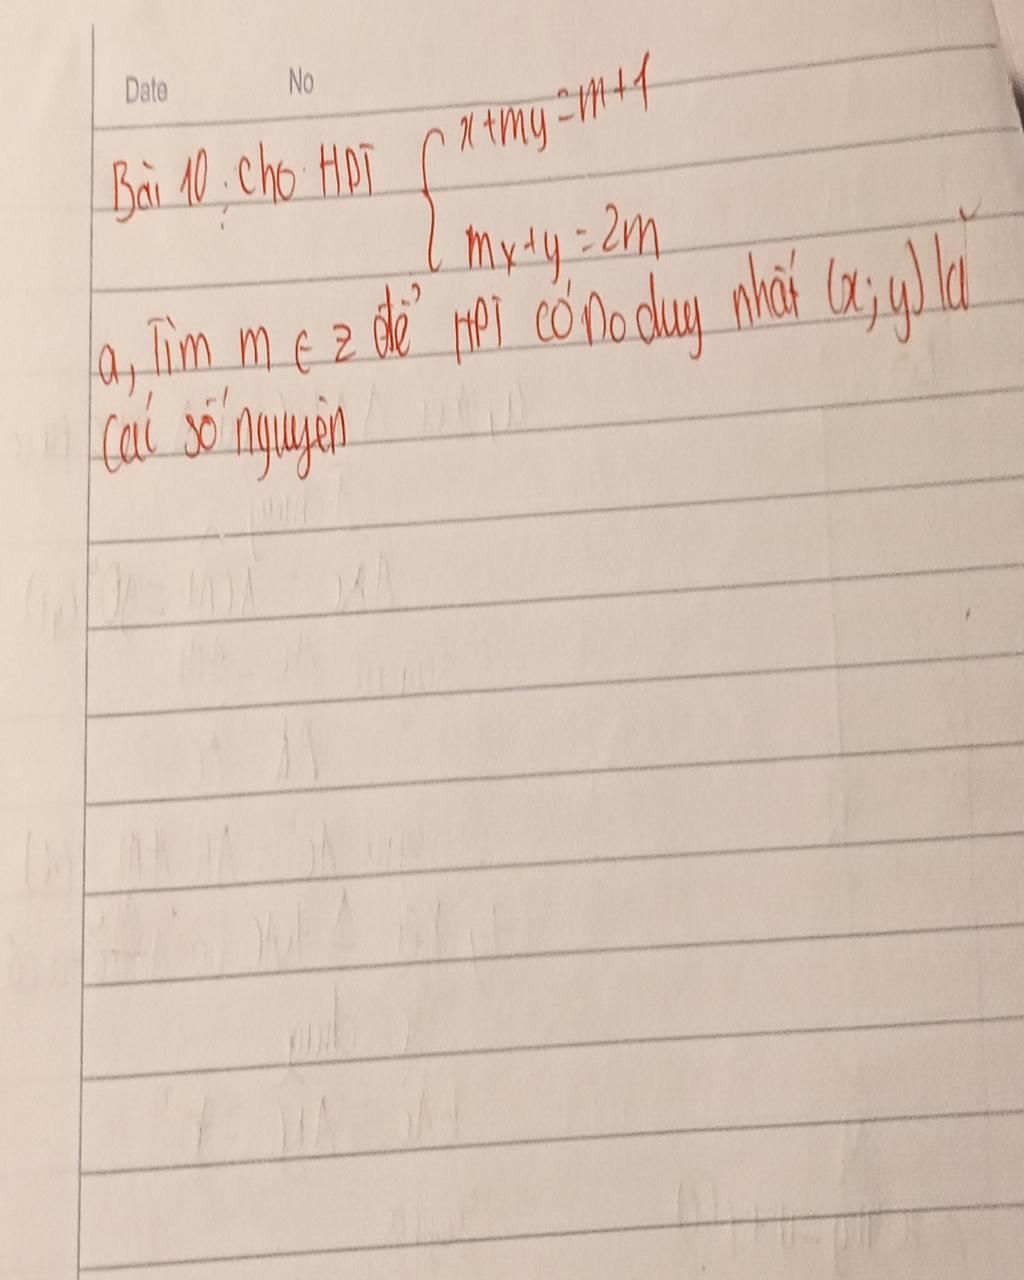 Date No
Bài 10: Cho HPT { x+my=m+1
mx+y=2m
a, Tìm m ∈ Z để HPT có no duy nhất (x; y) là
các số nguyên